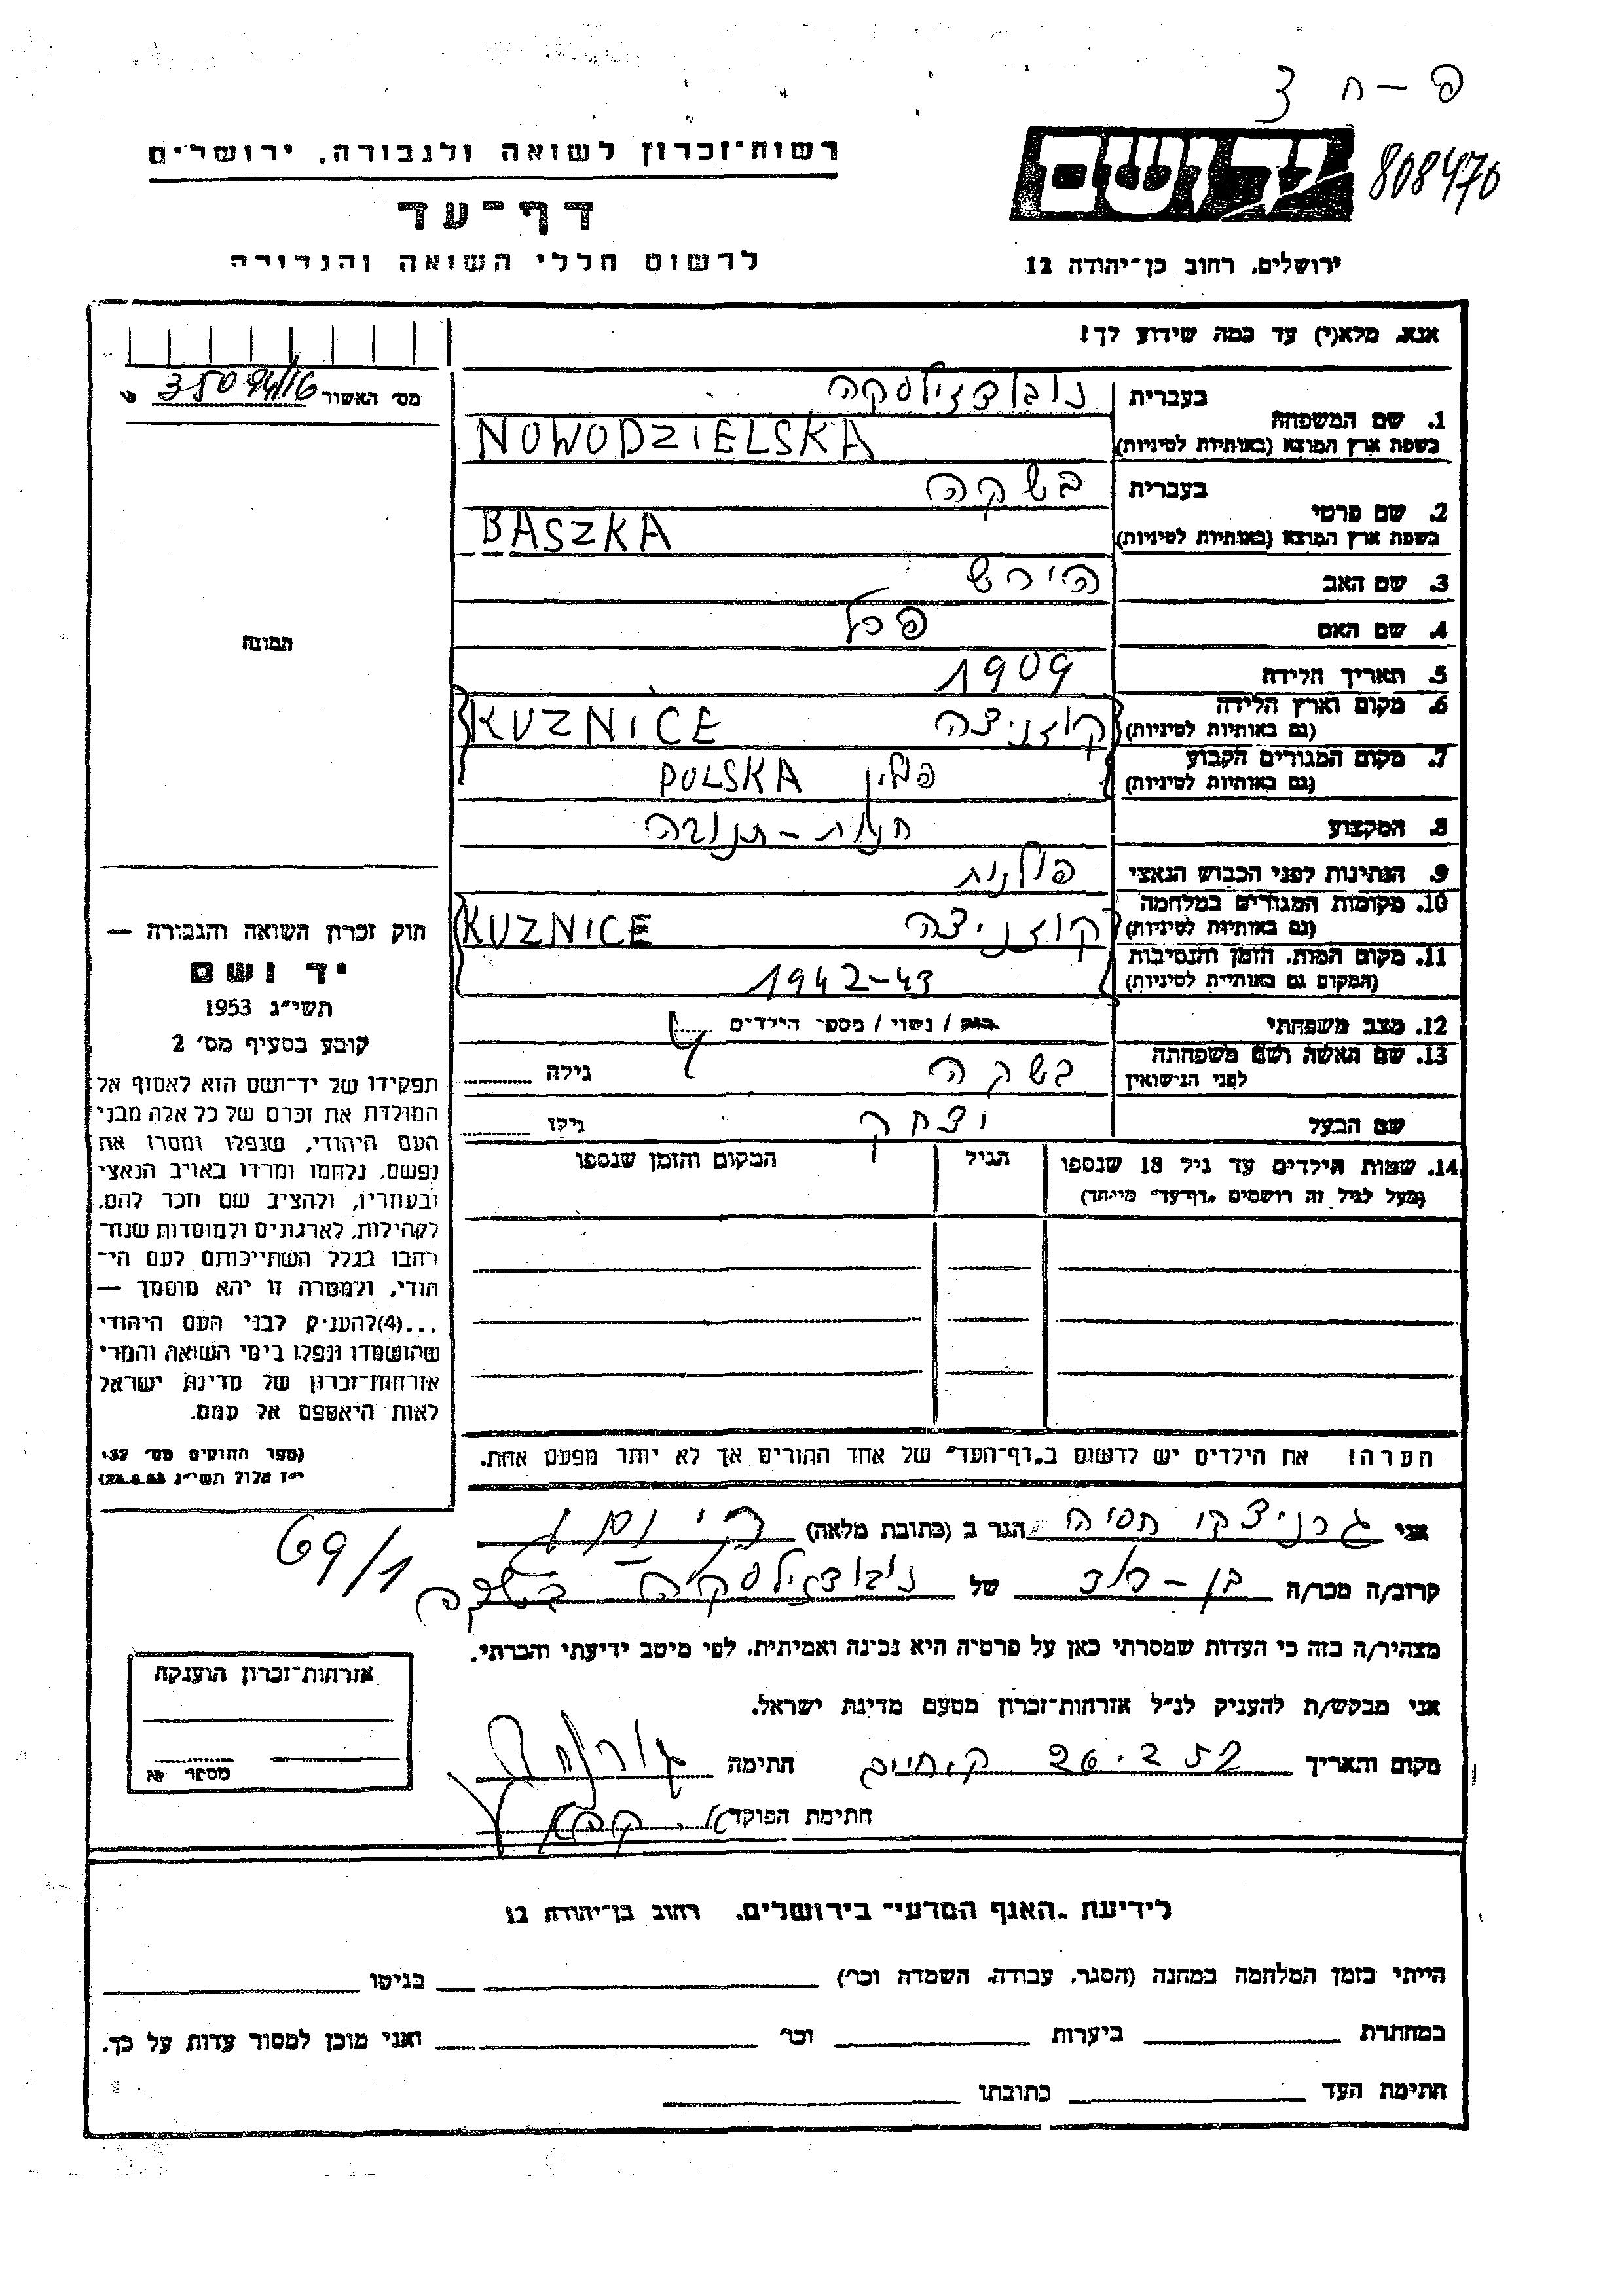 פ – ח 3
רשות־זכרון לשואה ולגבורה, ירושלים
דף־עד
לרשום חללי השואה והגבורה
יד ושם
808476
ירושלים, רחוב בן־יהודה 12
אנא, מלא(י) עד כמה שידוע לך!
מס׳ האשור 35094/16
1. שם המשפחה
בעברית נובודזילסקה
בשפת ארץ המוצא (באותיות לטיניות) NOWODZIELSKA
2. שם פרטי
בעברית בשקה
בשפת ארץ המוצא (באותיות לטיניות) BASZKA
3. שם האב הירש
4. שם האם פרל
5. תאריך הלידה 1909
6. מקום וארץ הלידה קוזניצה KUZNICE
(גם באותיות לטיניות)
7. מקום המגורים הקבוע פולין POLSKA
(גם באותיות לטיניות)
8. המקצוע חנות – תנובה
9. הנתינות לפני הכבוש הנאצי פולנית
10. מקומות המגורים במלחמה קוזניצה KUZNICE
(גם באותיות לטיניות)
11. מקום המות, הזמן והנסיבות 1942–43
(המקום גם באותיות לטיניות)
12. מצב משפחתי רוק / נשוי / מספר הילדים 4
13. שם האשה ושם משפחתה בשקה גילה
לפני הנישואין
שם הבעל יצחק גילו
14. שמות הילדים עד גיל 18 שנספו הגיל המקום והזמן שנספו
(מעל לגיל זה רושמים „דף־עד״ מיוחד)
תמונה
חוק זכרון השואה והגבורה —
יד ושם
תשי״ג 1953
קובע בסעיף מס׳ 2
תפקידו של יד־ושם הוא לאסוף אל
המולדת את זכרם של כל אלה מבני
העם היהודי, שנפלו ומסרו את
נפשם, נלחמו ומרדו באויב הנאצי
ובעוזריו, ולהציב שם וזכר להם,
לקהילות, לארגונים ולמוסדות שנח־
רבו בגלל השתייכותם לעם הי־
הודי, ולמטרה זו יהא מוסמך —
...(4)להעניק לבני העם היהודי
שהושמדו ונפלו בימי השואה והמרי
אזרחות־זכרון של מדינת ישראל
לאות היאספם אל עמם.
(ספר החוקים מס׳ 132,
י״ז אלול תשי״ג 28.8.53)
הערה: את הילדים יש לרשום ב„דף־העד״ של אחד ההורים אך לא יותר מפעם אחת.
אני חסיה הגר ב (כתובת מלאה)
69/1
קרוב/ה מכר/ה בן – דוד של נובודזילסקה בשקה
מצהיר/ה בזה כי העדות שמסרתי כאן על פרטיה היא נכונה ואמיתית, לפי מיטב ידיעתי והכרתי.
אני מבקש/ת להעניק לנ״ל אזרחות־זכרון מטעם מדינת ישראל.
מקום והאריך ק. חיים חתימה
חתימת הפוקד
אזרחות־זכרון הוענקה
מספר
לידיעת „האגף המדעי״ בירושלים, רחוב בן־יהודה 12
הייתי בזמן המלחמה במחנה (הסגר, עבודה, השמדה וכר׳) בגיטו
במחתרת ביערות וכר׳ ואני מוכן למסור עדות על כך.
חתימת העד כתובתו